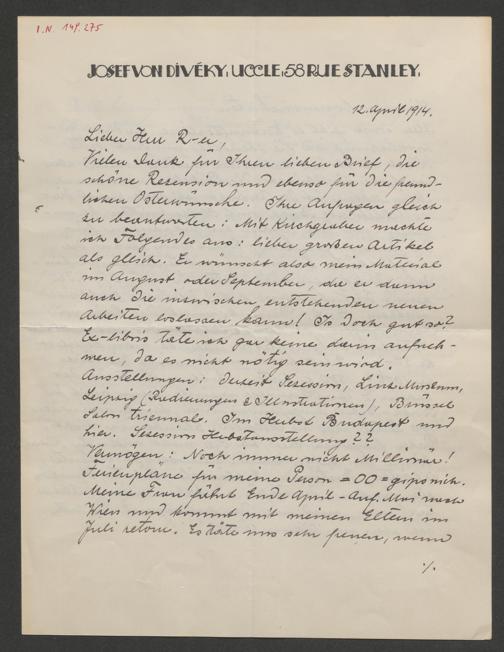 I.N. 149.275
JOSEF VON DIVÉKY, UCCLE, 58 RUE STANLEY.
12. April 1914.
Lieber Herr R-er,
Vielen Dank für Ihren lieben Brief, die
schöne Rezension und ebenso für die freund-
lichen Osterwünsche. Ihre Anfragen gleich
zu beantworten: Mit Kirchgraber machte
ich Folgendes aus: lieber großen Artikel
als gleich. Er wünscht also mein Material
im August oder September, da er dann
auch die inzwischen entstehenden neuen
Arbeiten loslassen kann! Is doch gut so?
Ex-libris täte ich gar keine darin aufneh-
men, da es nicht nötig sein wird.
Ausstellungen: derzeit Sezession, Linz Museum,
Leipzig (Radierungen & Illustrationen), Brüssel
Salon triennale. Im Herbst Budapest und
hier. Sezession Herbstausstellung??
Vermögen: Noch immer nicht Millionär!
Ferienpläne für meine Person = 00 = gips nich.
Meine Frau fährt Ende April - Anf. Mai nach
Wien und kommt mit meinen Eltern im
Juli retour. Es täte uns sehr freuen, wenn
./.